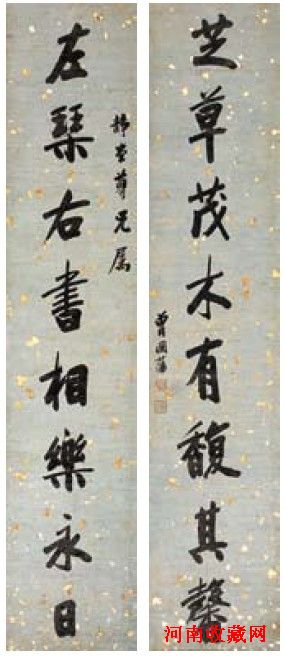 芝草茂木有馥其馨
曾國藩
尊兄属
左琹右書相樂永日
河南收藏网